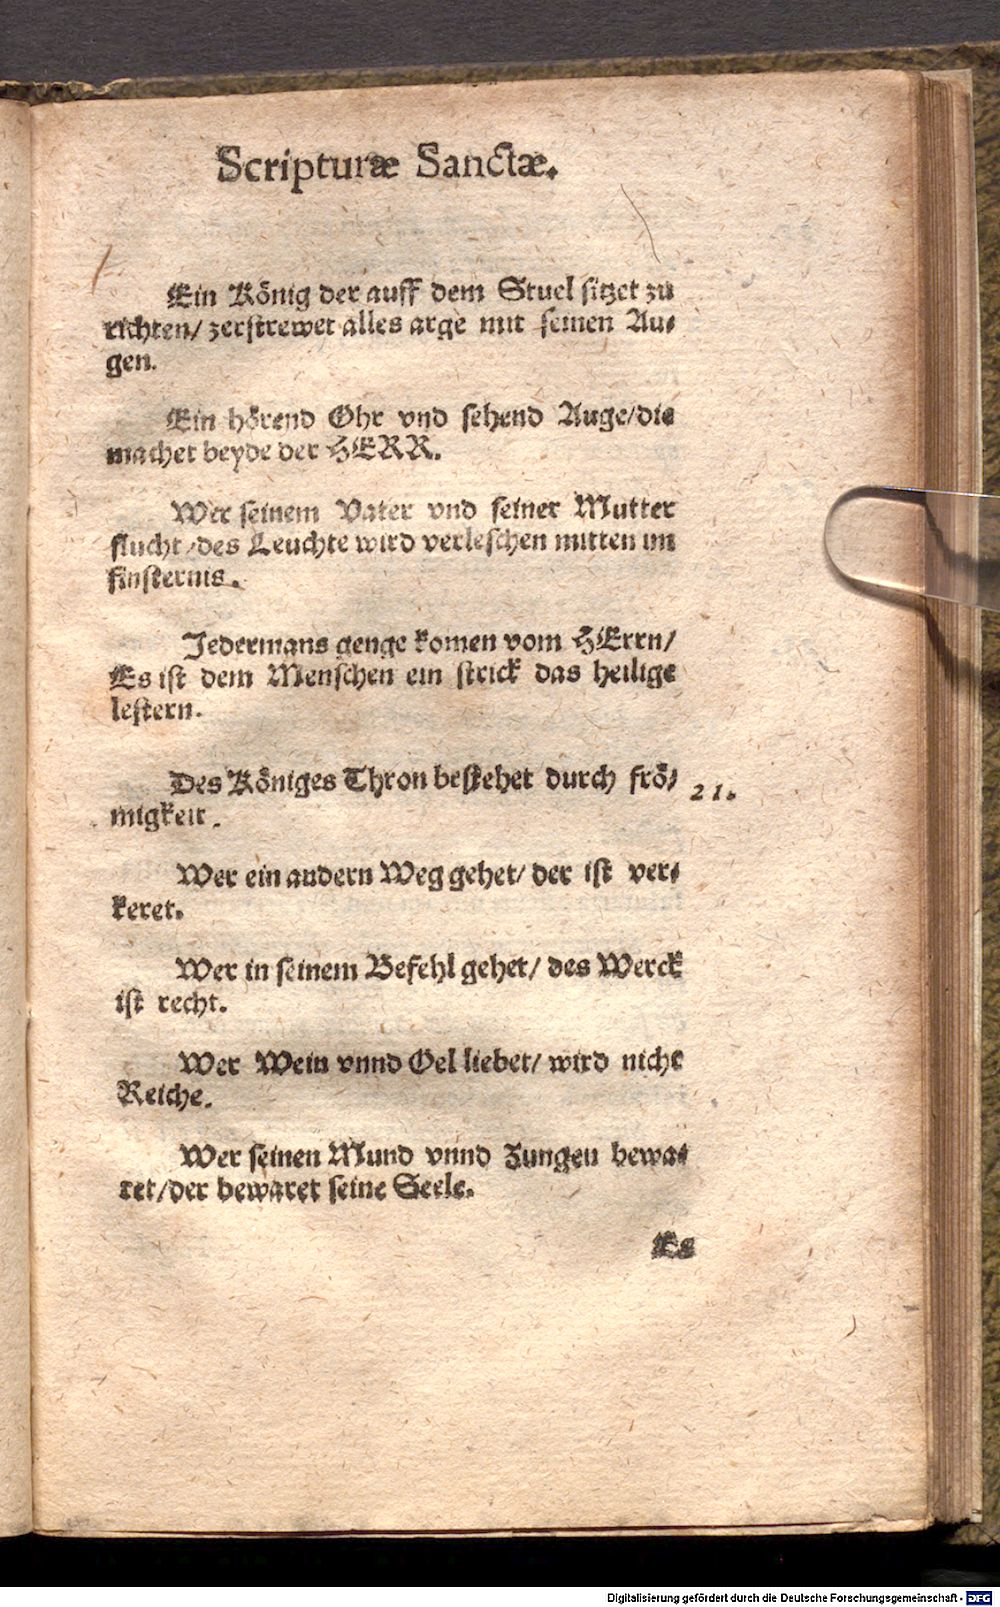 Scripturæ Sanctæ.
Ein König der auff dem Stuel sitzet zu
richten/ zerstrewet alles arge mit seinen Au⸗
gen.
Ein hörend Ohr vnd sehend Auge/die
machet beyde der HERR.
Wer seinem Vater vnd seiner Mutter
flucht/des Leuchte wird verleschen mitten im
finsternis.
Jedermans genge komen vom HErrn/
Es ist dem Menschen ein strick das heilige
lestern.
Des Königes Thron bestehet durch frö⸗
migkeit.
21.
Wer ein andern Weg gehet/ der ist ver⸗
keret.
Wer in seinem Befehl gehet/ des Werck
ist recht.
Wer Wein vnnd Oel liebet/ wird nicht
Reiche.
Wer seinen Mund vnnd Zungen bewa⸗
ret/der bewaret seine Seele.
Es
Digitalisierung gefördert durch die Deutsche Forschungsgemeinschaft - DFG